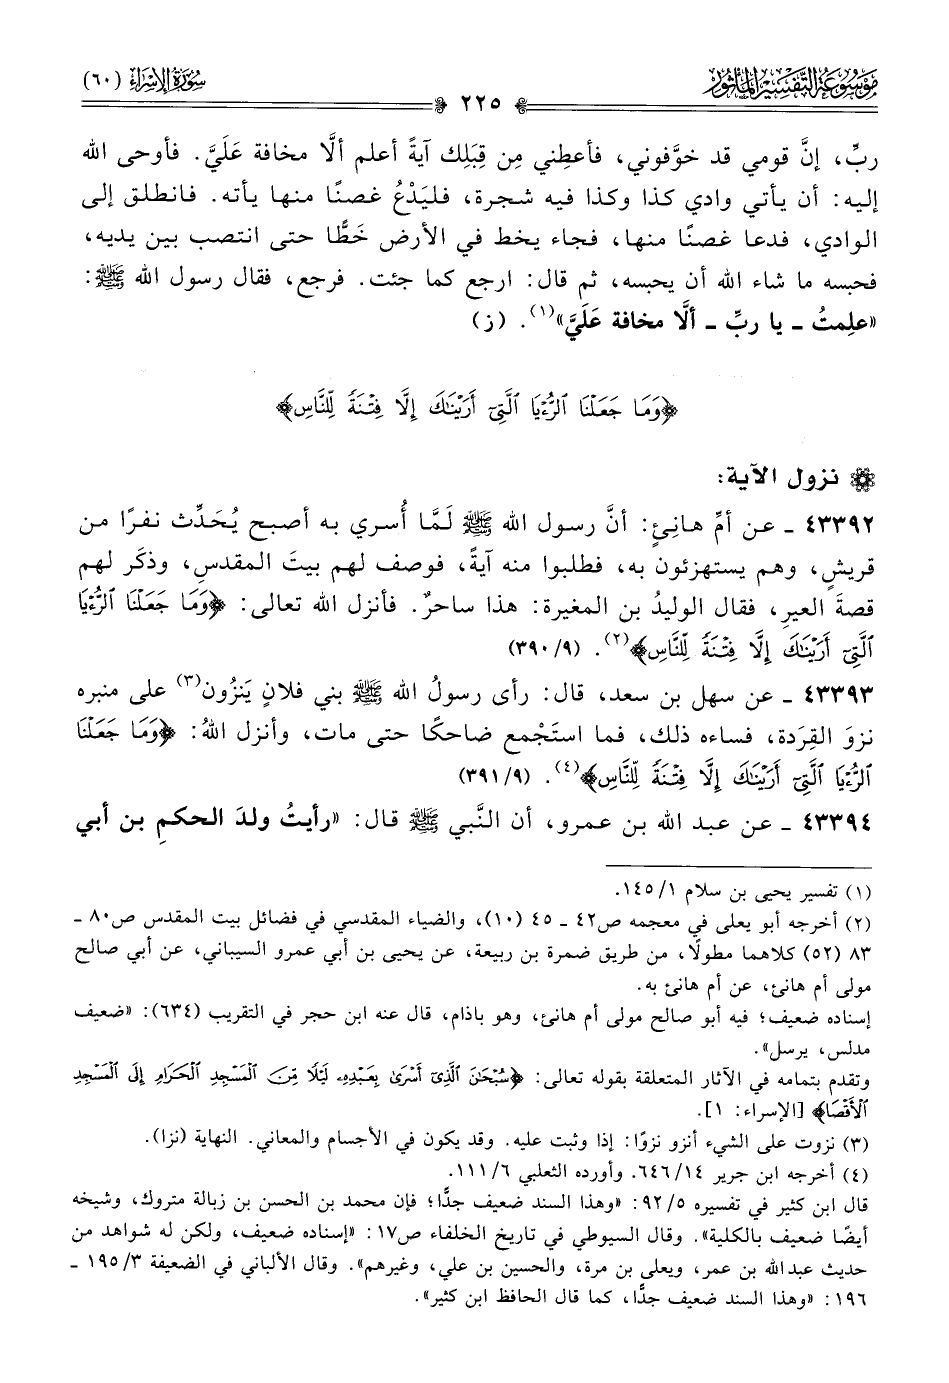 مَوْسُوعَةُ التَّفْسِيْرِ المَأْثُور
سُورَةُ الإِسْرَاء (٦٠)
٢٢٥
ربِّ، إنَّ قومي قد خوَّفوني، فأعطِني مِن قِبَلِك آيةً أعلم ألَّا مخافة عَلَيَّ. فأوحى الله
إليه: أن يأتي وادي كذا وكذا فيه شجرة، فليَدْعُ غصنًا منها يأته. فانطلق إلى
الوادي، فدعا غصنًا منها، فجاء يخط في الأرض خَطًّا حتى انتصب بين يديه،
فحبسه ما شاء الله أن يحبسه، ثم قال: ارجع كما جئت. فرجع، فقال رسول الله ﷺ:
«علِمتُ ـ يا ربِّ ـ ألَّا مخافة عَلَيَّ»(١). (ز)
﴿وَمَا جَعَلْنَا ٱلرُّءْيَا ٱلَّتِىٓ أَرَيْنَٰكَ إِلَّا فِتْنَةً لِّلنَّاسِ﴾
نزول الآية:
٤٣٣٩٢ ـ عن أمِّ هانِئٍ: أنَّ رسول الله ﷺ لَمَّا أُسري به أصبح يُحَدِّث نفرًا من
قريشٍ، وهم يستهزئون به، فطلبوا منه آيةً، فوصف لهم بيتَ المقدسِ، وذكَر لهم
قصةَ العيرِ، فقال الوليدُ بن المغيرة: هذا ساحرٌ. فأنزل الله تعالى: ﴿وَمَا جَعَلْنَا ٱلرُّءْيَا
ٱلَّتِىٓ أَرَيْنَٰكَ إِلَّا فِتْنَةً لِّلنَّاسِ﴾(٢). (٣٩٠/٩)
٤٣٣٩٣ ـ عن سهل بن سعد، قال: رأى رسولُ الله ﷺ بني فلانٍ يَنزُون(٣) على منبره
نزوَ القِرَدة، فساءه ذلك، فما استَجْمع ضاحكًا حتى مات، وأنزل اللهُ: ﴿وَمَا جَعَلْنَا
ٱلرُّءْيَا ٱلَّتِىٓ أَرَيْنَٰكَ إِلَّا فِتْنَةً لِّلنَّاسِ﴾(٤). (٣٩١/٩)
٤٣٣٩٤ ـ عن عبد الله بن عمرو، أن النَّبي ﷺ قال: «رأيتُ ولدَ الحكمِ بن أبي
(١) تفسير يحيى بن سلام ١٤٥/١.
(٢) أخرجه أبو يعلى في معجمه ص٤٢ ـ ٤٥ (١٠)، والضياء المقدسي في فضائل بيت المقدس ص٨٠ ـ
٨٣ (٥٢) كلاهما مطولًا، من طريق ضمرة بن ربيعة، عن يحيى بن أبي عمرو السيباني، عن أبي صالح
مولى أم هانئ، عن أم هانئ به.
إسناده ضعيف؛ فيه أبو صالح مولى أم هانئ، وهو باذام، قال عنه ابن حجر في التقريب (٦٣٤): «ضعيف
مدلس، يرسل».
وتقدم بتمامه في الآثار المتعلقة بقوله تعالى: ﴿سُبْحَٰنَ ٱلَّذِىٓ أَسْرَىٰ بِعَبْدِهِۦ لَيْلًا مِّنَ ٱلْمَسْجِدِ ٱلْحَرَامِ إِلَى ٱلْمَسْجِدِ
ٱلْأَقْصَا﴾ [الإسراء: ١].
(٣) نزوت على الشيء أنزو نزوًا: إذا وثبت عليه. وقد يكون في الأجسام والمعاني. النهاية (نزا).
(٤) أخرجه ابن جرير ٦٤٦/١٤. وأورده الثعلبي ١١١/٦.
قال ابن كثير في تفسيره ٩٢/٥: «وهذا السند ضعيف جدًّا؛ فإن محمد بن الحسن بن زبالة متروك، وشيخه
أيضًا ضعيف بالكلية». وقال السيوطي في تاريخ الخلفاء ص١٧: «إسناده ضعيف، ولكن له شواهد من
حديث عبدالله بن عمر، ويعلى بن مرة، والحسين بن علي، وغيرهم». وقال الألباني في الضعيفة ١٩٥/٣ ـ
١٩٦: «وهذا السند ضعيف جدًّا، كما قال الحافظ ابن كثير».